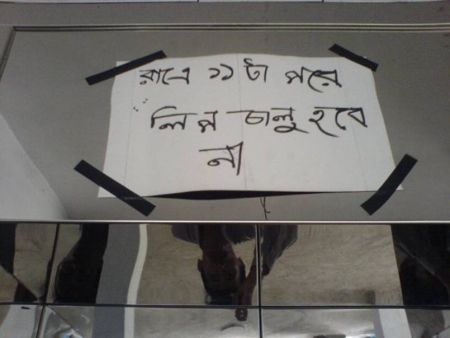 রাত্রে ১১ টা পরে
লিপ চালু হবে
না